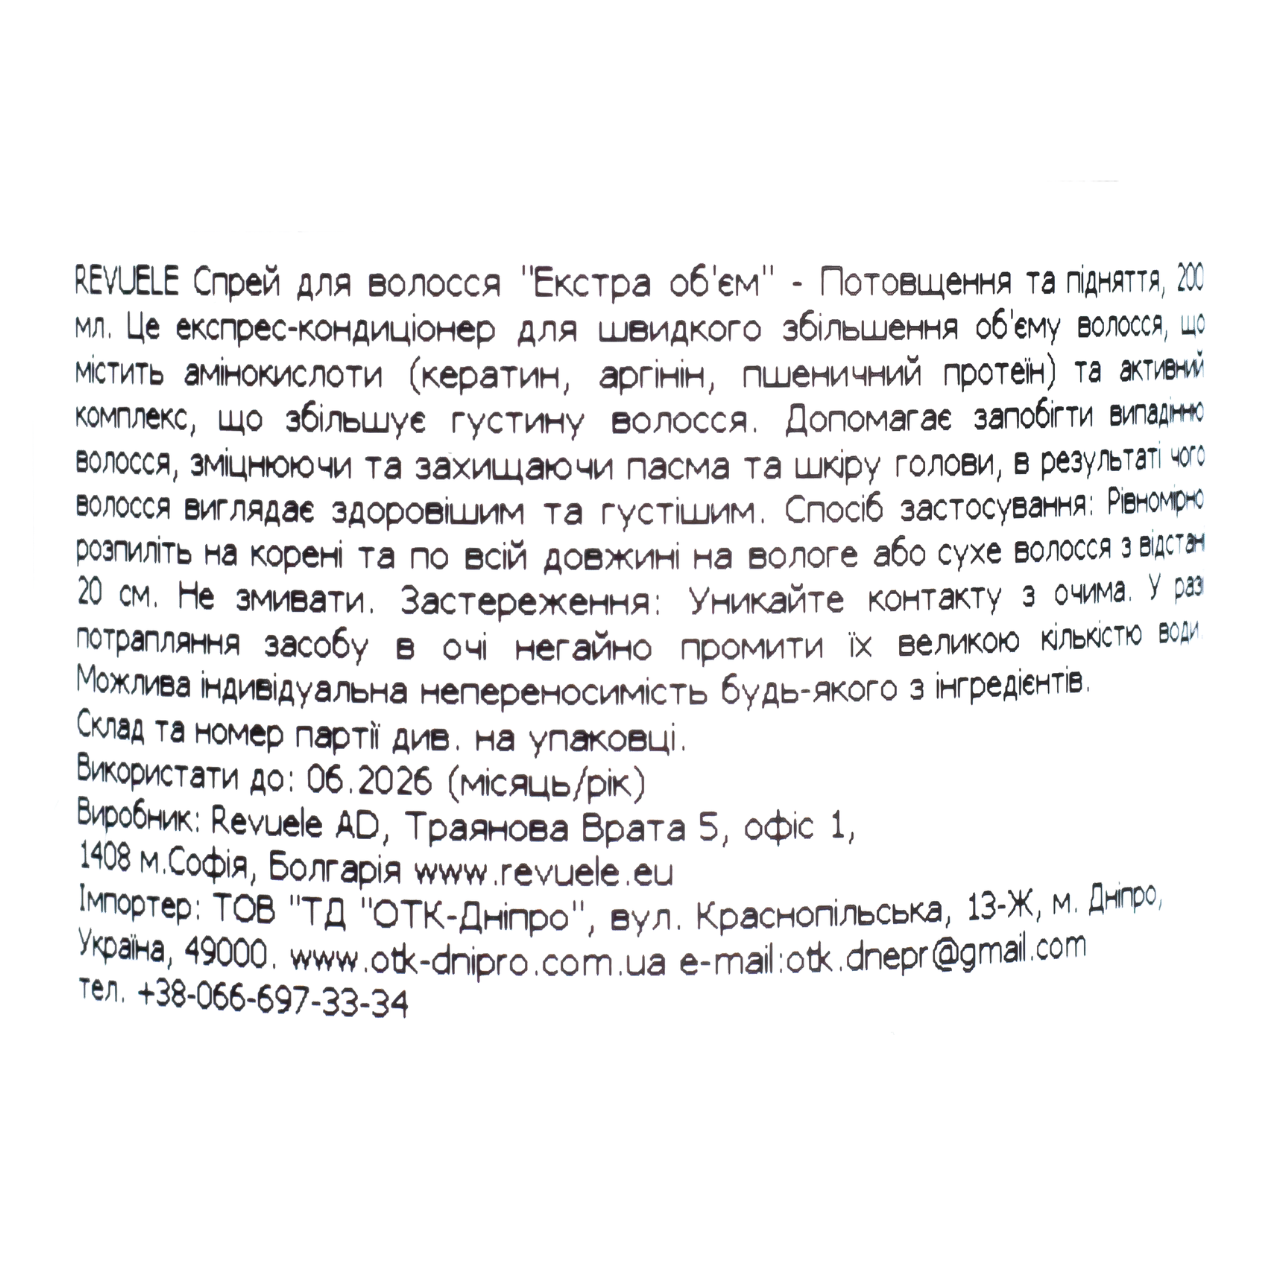 REVUELE Спрей для волосся "Екстра об'єм" - Потовщення та підняття, 200
мл. Це експрес-кондиціонер для швидкого збільшення об'єму волосся, що
містить амінокислоти (кератин, аргінін, пшеничний протеїн) та активний
комплекс, що збільшує густину волосся. Допомагає запобігти випадінню
волосся, зміцнюючи та захищаючи пасма та шкіру голови, в результаті чого
волосся виглядає здоровішим та густішим. Спосіб застосування: Рівномірно
розпиліть на корені та по всій довжині на вологе або сухе волосся з відстан
20 см. Не змивати. Застереження: Уникайте контакту з очима. У раз
потрапляння засобу в очі негайно промити їх великою кількістю води.
Можлива індивідуальна непереносимість будь-якого з інгредієнтів.
Склад та номер партії див. на упаковці.
Використати до: 06.2026 (місяць/рік)
Виробник: Revuele AD, Траянова Врата 5, офіс 1,
1408 м.Софія, Болгарія www.revuele.eu
Імпортер: ТОВ "ТД "ОТК-Дніпро", вул. Краснопільська, 13-Ж, м. Дніпро,
Україна, 49000. www.otk-dnipro.com.ua e-mail:otk.dnepr@gmail.com
тел. +38-066-697-33-34